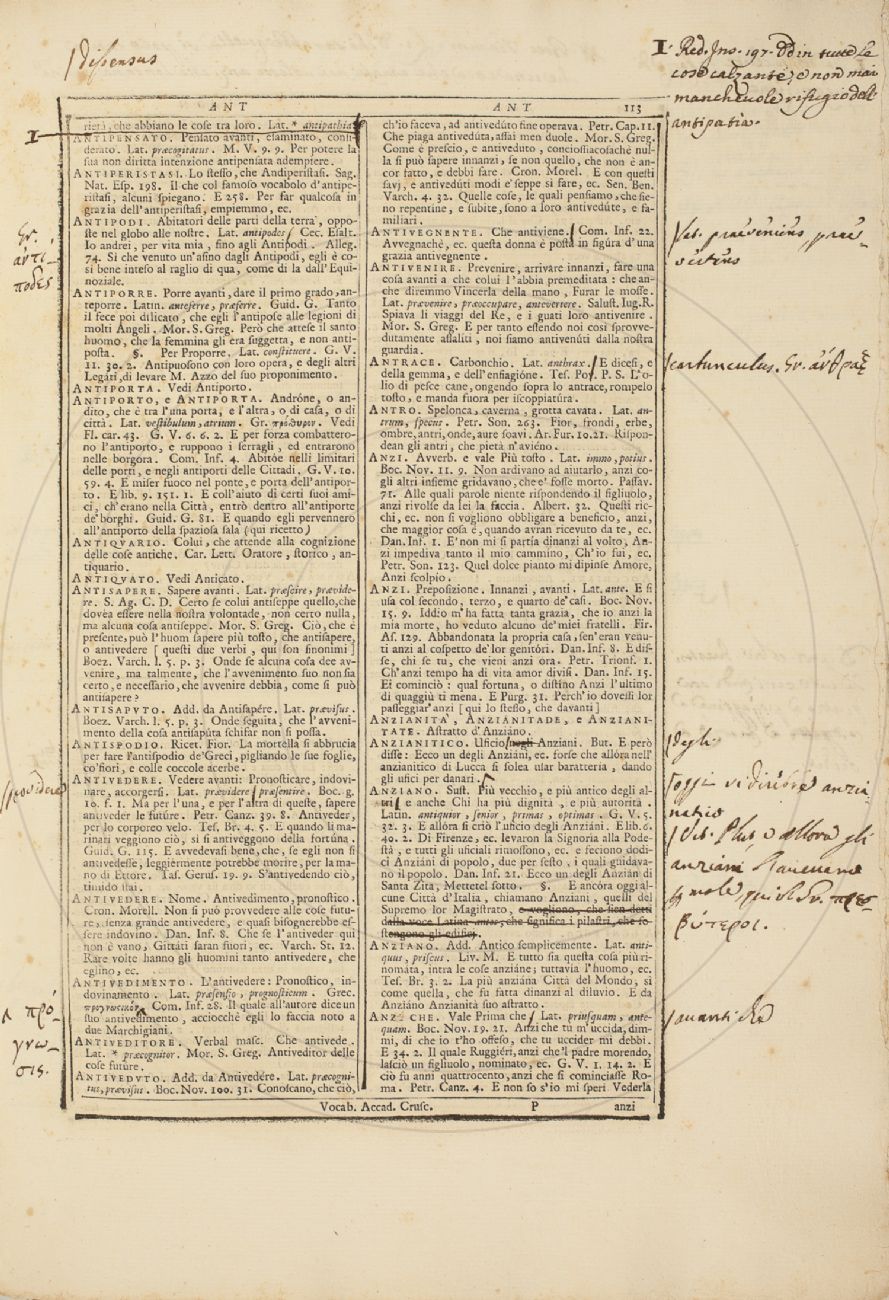 dissensus
1 Red. Ins. 197. in tutte le
cose calzante, e non mai
manchevole rifugio dell'
antipatia.
ANT
ANT 113
1
rietà, che abbiano le cose tra loro. Lat. * antipathia.
ANTIPENSATO. Pensato avanti, esaminato, consi-
derato. Lat. præcogitatus. M. V. 9. 9. Per potere la
sua non diritta intenzione antipensata adempiere.
ANTIPERISTASI. Lo stesso, che Andiperistasi. Sag.
Nat. Esp. 198. Il che col famoso vocabolo d'antipe-
ristasi, alcuni spiegano. E 258. Per far qualcosa in
grazia dell'antiperistasi, empiemmo, ec.
ANTIPODI. Abitatori delle parti della terra, oppo-
ste nel globo alle nostre. Lat. antipodes. Cec. Esalt.
Io andrei, per vita mia, fino agli Antipodi. Alleg.
74. Sì che venuto un'asino dagli Antipodi, egli è co-
sì bene inteso al raglio di qua, come di là dall'Equi-
noziale.
ANTIPORRE. Porre avanti, dare il primo grado, an-
teporre. Latin. anteferre, præferre. Guid. G. Tanto
il fece poi dilicato, che egli l'antipose alle legioni di
molti Angeli. Mor. S. Greg. Però che attese il santo
huomo, che la femmina gli era suggetta, e non anti-
posta. §. Per Proporre. Lat. constituere. G. V.
11. 30. 2. Antipuosono con loro opera, e degli altri
Legati, di levare M. Azzo del suo proponimento.
ANTIPORTA. Vedi Antiporto.
ANTIPORTO, e ANTIPORTA. Andróne, o an-
dito, che è tra l'una porta, e l'altra, o di casa, o di
città. Lat. vestibulum, atrium. Gr. πρόθυρον. Vedi
Fl. car. 43. G. V. 6. 6. 2. E per forza combattero-
no l'antiporto, e ruppono i serragli, ed entrarono
nelle borgora. Com. Inf. 4. Abitóe nelli limitari
delle porti, e negli antiporti delle Cittadi. G. V. 10.
59. 4. E miser fuoco nel ponte, e porta dell'antipor-
to. E lib. 9. 151. 1. E coll'aiuto di certi suoi ami-
ci, ch'erano nella Città, entrò dentro all'antiporte
de' borghi. Guid. G. 81. E quando egli pervennero
all'antiporto della spaziosa sala (qui ricetto)
ANTIQVARIO. Colui, che attende alla cognizione
delle cose antiche. Car. Lett. Oratore, storico, an-
tiquario.
ANTIQVATO. Vedi Anticato.
ANTISAPERE. Sapere avanti. Lat. præscire, prævide-
re. S. Ag. C. D. Certo se colui antiseppe quello, che
dovéa essere nella nostra volontade, non certo nulla,
ma alcuna cosa antiseppe. Mor. S. Greg. Ciò, che è
presente, può l'huom sapere più tosto, che antisapere,
o antivedere [questi due verbi, qui son sinonimi]
Boez. Varch. l. 5. p. 3. Onde se alcuna cosa dee av-
venire, ma talmente, che l'avvenimento suo non sia
certo, e necessario, che avvenire debbia, come si può
antisapere?
ANTISAPVTO. Add. da Antisapére. Lat. prævisus.
Boez. Varch. l. 5. p. 3. Onde seguita, che l'avveni-
mento della cosa antisaputa schifar non si possa.
ANTISPODIO. Ricet. Fior. La mortella si abbrucia
per fare l'antispodio de' Greci, pigliando le sue foglie,
co' fiori, e colle coccole acerbe.
ANTIVEDERE. Vedere avanti: Pronosticare, indovi-
nare, accorgersi. Lat. prævidere, præsentire. Boc. g.
10. f. 1. Ma per l'una, e per l'altra di queste, sapere
antiveder le future. Petr. Canz. 39. 8. Antiveder,
per lo corporeo velo. Tes. Br. 4. 5. E quando li ma-
rinari veggiono ciò, sì si antiveggono della fortúna.
Guid. G. 115. E avvedevasi bene, che, se egli non si
antivedesse, leggiérmente potrebbe morire, per la ma-
no di Ettore. Tas. Gerus. 19. 9. S'antivedendo ciò,
timido stai.
ANTIVEDERE. Nome. Antivedimento, pronostico.
Cron. Morell. Non si può provvedere alle cose futu-
re, senza grande antivedere, e quasi bisognerebbe es-
sere indovino. Dan. Inf. 8. Che se l'antiveder qui
non è vano, Gittati saran fuori, ec. Varch. St. 12.
Rare volte hanno gli huomini tanto antivedere, che
eglino, ec.
ANTIVEDIMENTO. L'antivedere: Pronostico, in-
dovinamento. Lat. præsensio, prognosticum. Grec.
προγνωστικόν. Com. Inf. 28. Il quale all'autore dice un
suo antivedimento, acciocchè egli lo faccia noto a
due Marchigiani.
ANTIVEDITORE. Verbal masc. Che antivede.
Lat. * præcognitor. Mor. S. Greg. Antiveditor delle
cose future.
ANTIVEDVTO. Add. da Antivedére. Lat. præcogni-
tus, prævisus. Boc. Nov. 100. 31. Conoscano, che ciò,
ch'io faceva, ad antivedúto fine operava. Petr. Cap. 11.
Che piaga antivedúta, assai men duole. Mor. S. Greg.
Come è prescio, e antiveduto, conciossiacosachè nul-
la si può sapere innanzi, se non quello, che non è an-
cor fatto, e debbi fare. Cron. Morel. E con questi
savj, e antivedúti modi e' seppe sì fare, ec. Sen. Ben.
Varch. 4. 32. Quelle cose, le quali pensiamo, che sie-
no repentine, e subite, sono a loro antivedúte, e fa-
miliari.
ANTIVEGNENTE. Che antiviene. Com. Inf. 22.
Avvegnachè, ec. questa donna è posta in figúra d'una
grazia antivegnente.
ANTIVENIRE. Prevenire, arrivare innanzi, fare una
cosa avanti a che colui l'abbia premeditata: che an-
che diremmo Vincerla della mano, Furar le mosse.
Lat. prævenire, præoccupare, antevertere. Salust. Iug. R.
Spiava li viaggi del Re, e i guati loro antivenire.
Mor. S. Greg. E per tanto essendo noi così sprovve-
dutamente assaliti, noi siamo antivenúti dalla nostra
guardia.
ANTRACE. Carbonchio. Lat. anthrax. E dicesi, e
della gemma, e dell'enfiagióne. Tes. Pov. P. S. L'o-
lio di pesce cane, ongendo sopra lo antrace, rompelo
tosto, e manda fuora per iscoppiatúra.
ANTRO. Spelonca, caverna, grotta cavata. Lat. an-
trum, specus. Petr. Son. 263. Fior, frondi, erbe,
ombre, antri, onde, aure soavi. Ar. Fur. 10. 21. Rispon-
dean gli antri, che pietà n'aviéno.
ANZI. Avverb. e vale Più tosto. Lat. immo, potius.
Boc. Nov. 11. 9. Non ardivano ad aiutarlo, anzi co-
gli altri insieme gridavano, che e' fosse morto. Passav.
71. Alle quali parole niente rispondendo il figliuolo,
anzi rivolse da lei la faccia. Albert. 32. Questi ric-
chi, ec. non si vogliono obbligare a beneficio, anzi,
che maggior cosa è, quando avran ricevuto da te, ec.
Dan. Inf. 1. E' non mi si partía dinanzi al volto, An-
zi impediva tanto il mio cammino, Ch'io fui, ec.
Petr. Son. 123. Quel dolce pianto mi dipinse Amore,
Anzi scolpio.
ANZI. Preposizione. Innanzi, avanti. Lat. ante. E si
usa col secondo, terzo, e quarto de' casi. Boc. Nov.
15. 9. Iddio m'ha fatta tanta grazia, che io anzi la
mia morte, ho veduto alcuno de' miei fratelli. Fir.
As. 129. Abbandonata la propria casa, sen'eran venu-
ti anzi al cospetto de' lor genitóri. Dan. Inf. 8. E dis-
se, chi se tu, che vieni anzi ora. Petr. Trionf. 1.
Ch'anzi tempo ha di vita amor divisi. Dan. Inf. 15.
Ei cominciò: qual fortuna, o distino Anzi l'ultimo
dì quaggiù ti mena. E Purg. 31. Perch'io dovessi lor
passeggiar'anzi [qui lo stesso, che davanti]
ANZIANITÀ, ANZIANITADE, e ANZIANI-
TATE. Astratto d'Anziáno.
ANZIANITICO. Uficio negli Anziani. But. E però
disse: Ecco un degli Anziáni, ec. forse che allóra nell'
anzianitico di Lucca si solea usar baratteria, dando
gli ufici per danari.
ANZIANO. Sust. Più vecchio, e più antico degli al-
tri, e anche Chi ha più dignità, e più autorità.
Latin. antiquior, senior, primas, optimas. G. V. 5.
32. 3. E allóra si criò l'uficio degli Anziáni. E lib. 6.
40. 2. Di Firenze, ec. levaron la Signoria alla Pode-
stà, e tutti gli uficiali rimossono, ec. e feciono dodi-
ci Anziáni di popolo, due per sesto, i quali guidava-
no il popolo. Dan. Inf. 21. Ecco un degli Anziàn di
Santa Zita, Mettetel sotto. §. E ancóra oggi al-
cune Città d'Italia, chiamano Anziani, quelli del
Supremo lor Magistrato, e vogliono, che sien detti
dalla voce Latina antes, che significa i pilastri, che so-
stengono gli edificj.
ANZIANO. Add. Antico semplicemente. Lat. anti-
quus, priscus. Liv. M. E tutto sia questa cosa più ri-
nomáta, intra le cose anziáne; tuttavia l'huomo, ec.
Tes. Br. 3. 2. La più anziána Città del Mondo, sì
come quella, che fu fatta dinanzi al diluvio. E da
Anziáno Anzianità suo astratto.
ANZI CHE. Vale Prima che. Lat. priusquam, ante-
quam. Boc. Nov. 19. 21. Anzi che tu m'uccida, dim-
mi, di che io t'ho offeso, che tu uccider mi debbi.
E 34. 2. Il quale Ruggiéri, anzi che'l padre morendo,
lasciò un figliuolo, nominato, ec. G. V. 1. 14. 2. E
ciò fu anni quattrocento, anzi che si cominciasse Ro-
ma. Petr. Canz. 4. E non so s'io mi speri Vederla
Vocab. Accad. Crusc. P anzi
Gr.
ἀντί-
ποδες
providere
πρό-
γνω-
σις.
Lat. praeveniens, prae-
vertens
carbunculus. Gr. ἄνθραξ
degli
oggi si direbbe anzia-
natico
anziani
πρεσ-
βύτεροι.
avanti che